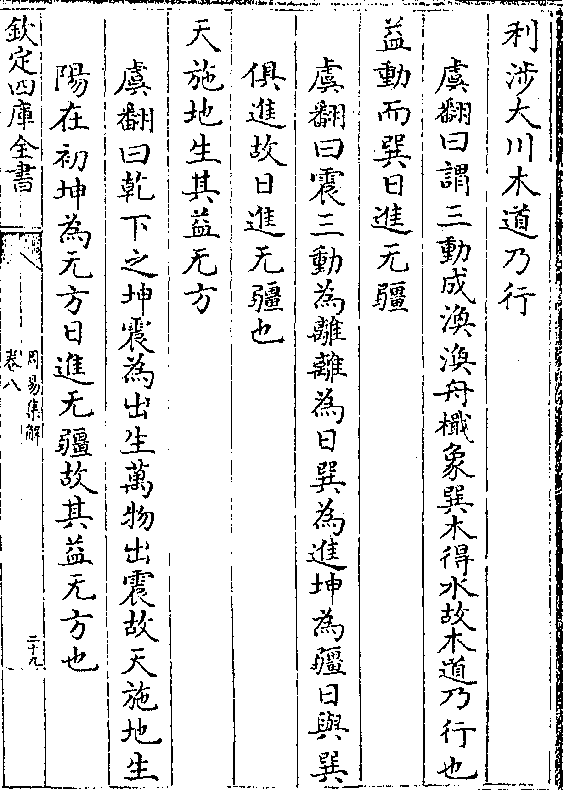 利涉大川木道乃行
虞翻曰謂三動成渙渙舟檝象巽木得水故木道乃行也
益動而巽日進无疆
虞翻曰震三動為離離為日巽為進坤為疆日與巽
俱進故日進无疆也
天施地生其益无方
虞翻曰乾下之坤震為出生萬物出震故天施地生
陽在初坤為无方日進无疆故其益无方也
欽定四庫全書
周易集解
卷八
二十九